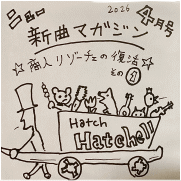 ニュー
2025 4月号
新曲マガジン
☆商人リゾーチェの復活☆
その①
Hatch
Hatchell